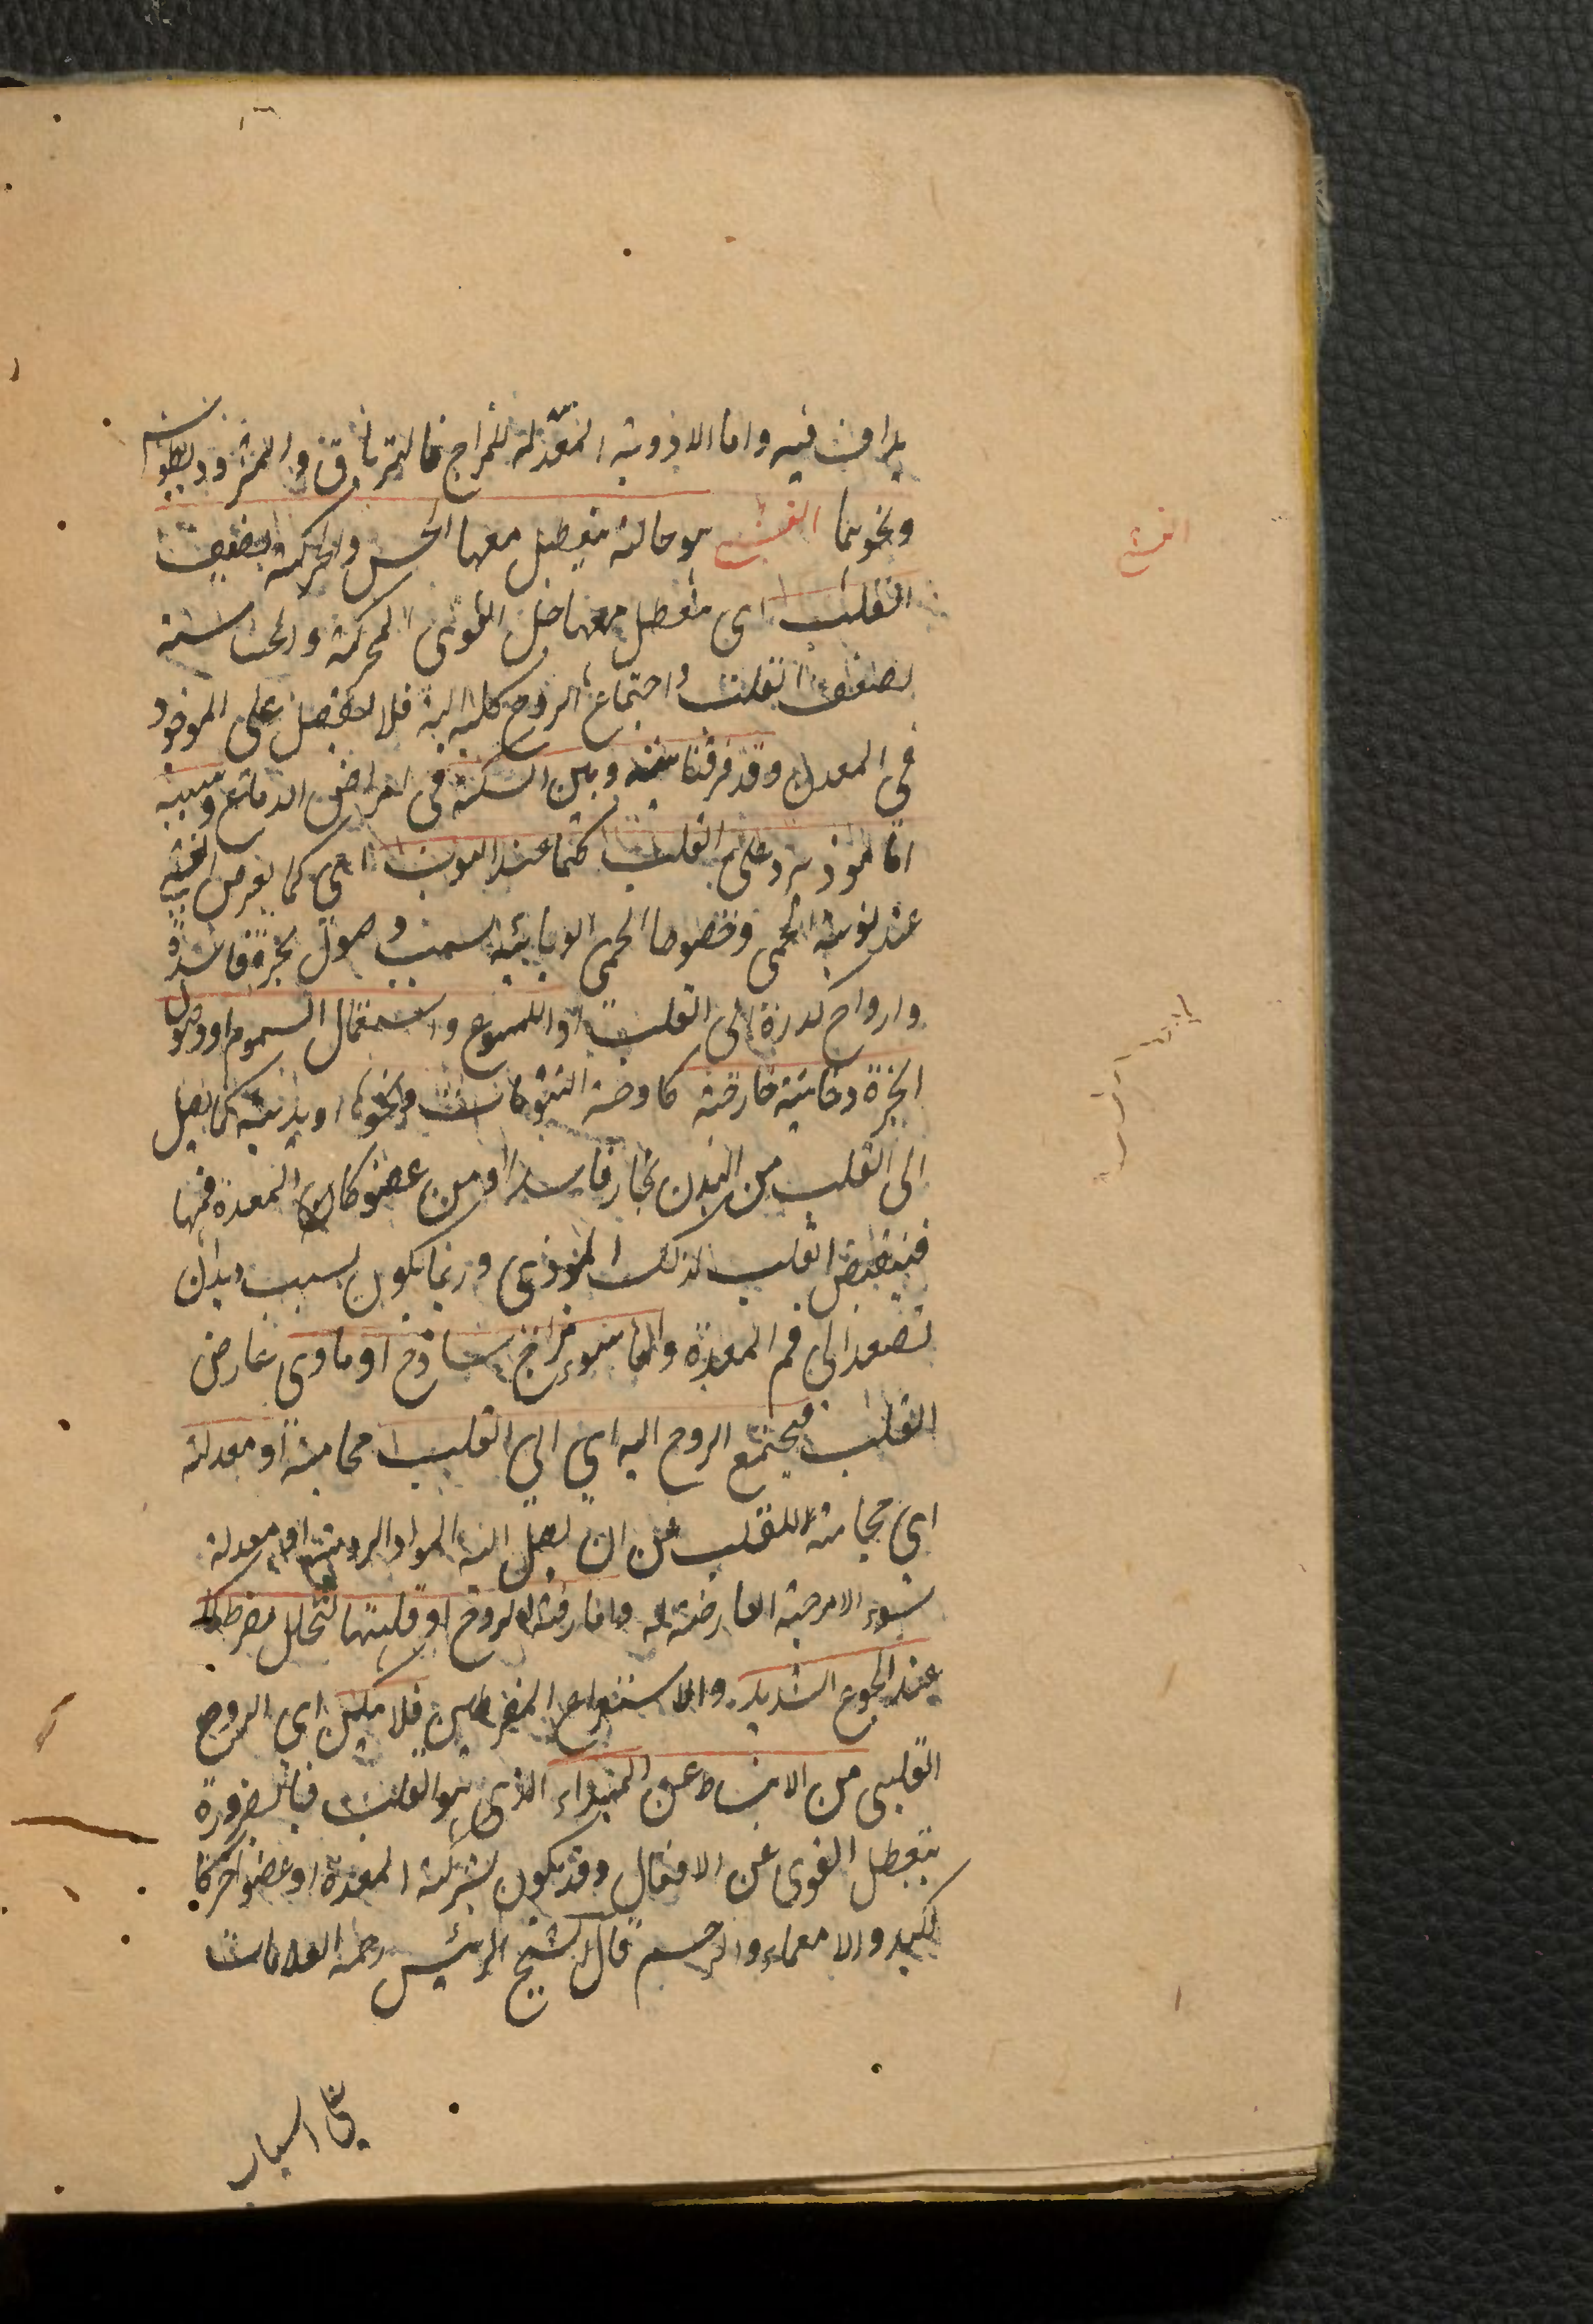 يداف فيه واما الادوية المعدلة للمزاج فالترياق والمثروديطوس
ونحوهما الغشي هو حالة يتعطل معها الحس والحركة لضعف
القلب اى يتعطل معها جل القوى المحركة والحساسة
لضعف القلب واجتماع الروح كله اليه فلا يفضل على الموجود
فى المعدن وقد فرقنا بينه وبين السكتة فى امراض الدماغ وسببه
اما لموذ يرد على القلب كما عند النوبة اى كما يعرض الغشي
عند نوبة الحمى وخصوصا الحمى الوبائية بسبب وصول ابخرة فاسدة
وارواح كدرة الى القلب او اللسوع واستعمال السموم او وصول
ابخرة دخانية خارجية كاوخة ونحوها او بدنية كما يصل
الى القلب من البدن بخار فاسد او من عضو كان المعدة فمها
فينقبض القلب لذلك الموذى وربما يكون بسبب ديدان
تصعد الى فم المعدة واما سوء مزاج ساذج او مادى عارض
القلب فيجتمع الروح اليه اي الى القلب محامية او معدلة
اي محامية للقلب عن ان يصل اليه المواد الردية او معدلة
سوء الامزجة العارضة له واما رقة الروح او قلتها لتحلل مفرط كما
عند الجوع الشديد والاستفراغ المفرطين فلا يمكن اي الروح
القلبى من الانبساط عن المبداء الذى هو القلب فبالضرورة
يتعطل القوى عن الافعال وقد يكون بشركة المعدة او عضو اخر كا
لكبد والامعاء والرحم قال الشيخ الرئيس رحمه العلامات
الغشي